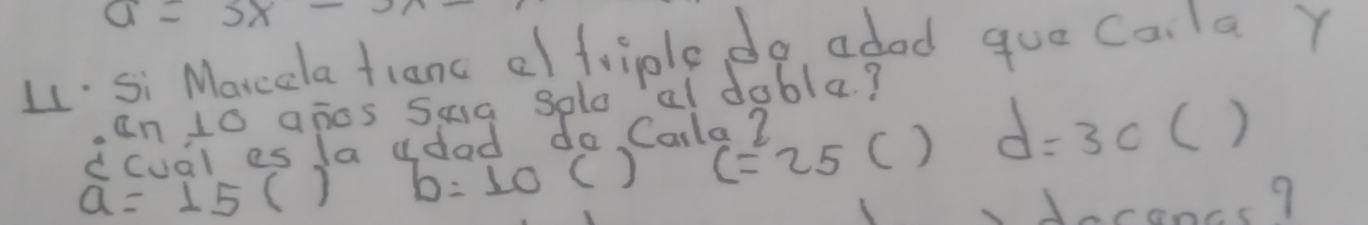 a = 3x
11. Si Marcela tiene el triple de edad que Carla y
en 10 años sera solo el doble?
¿cuál es la edad de Carla?
a= 15 ( ) b= 10 ( ) c= 25 ( ) d= 30 ( )
decenas?